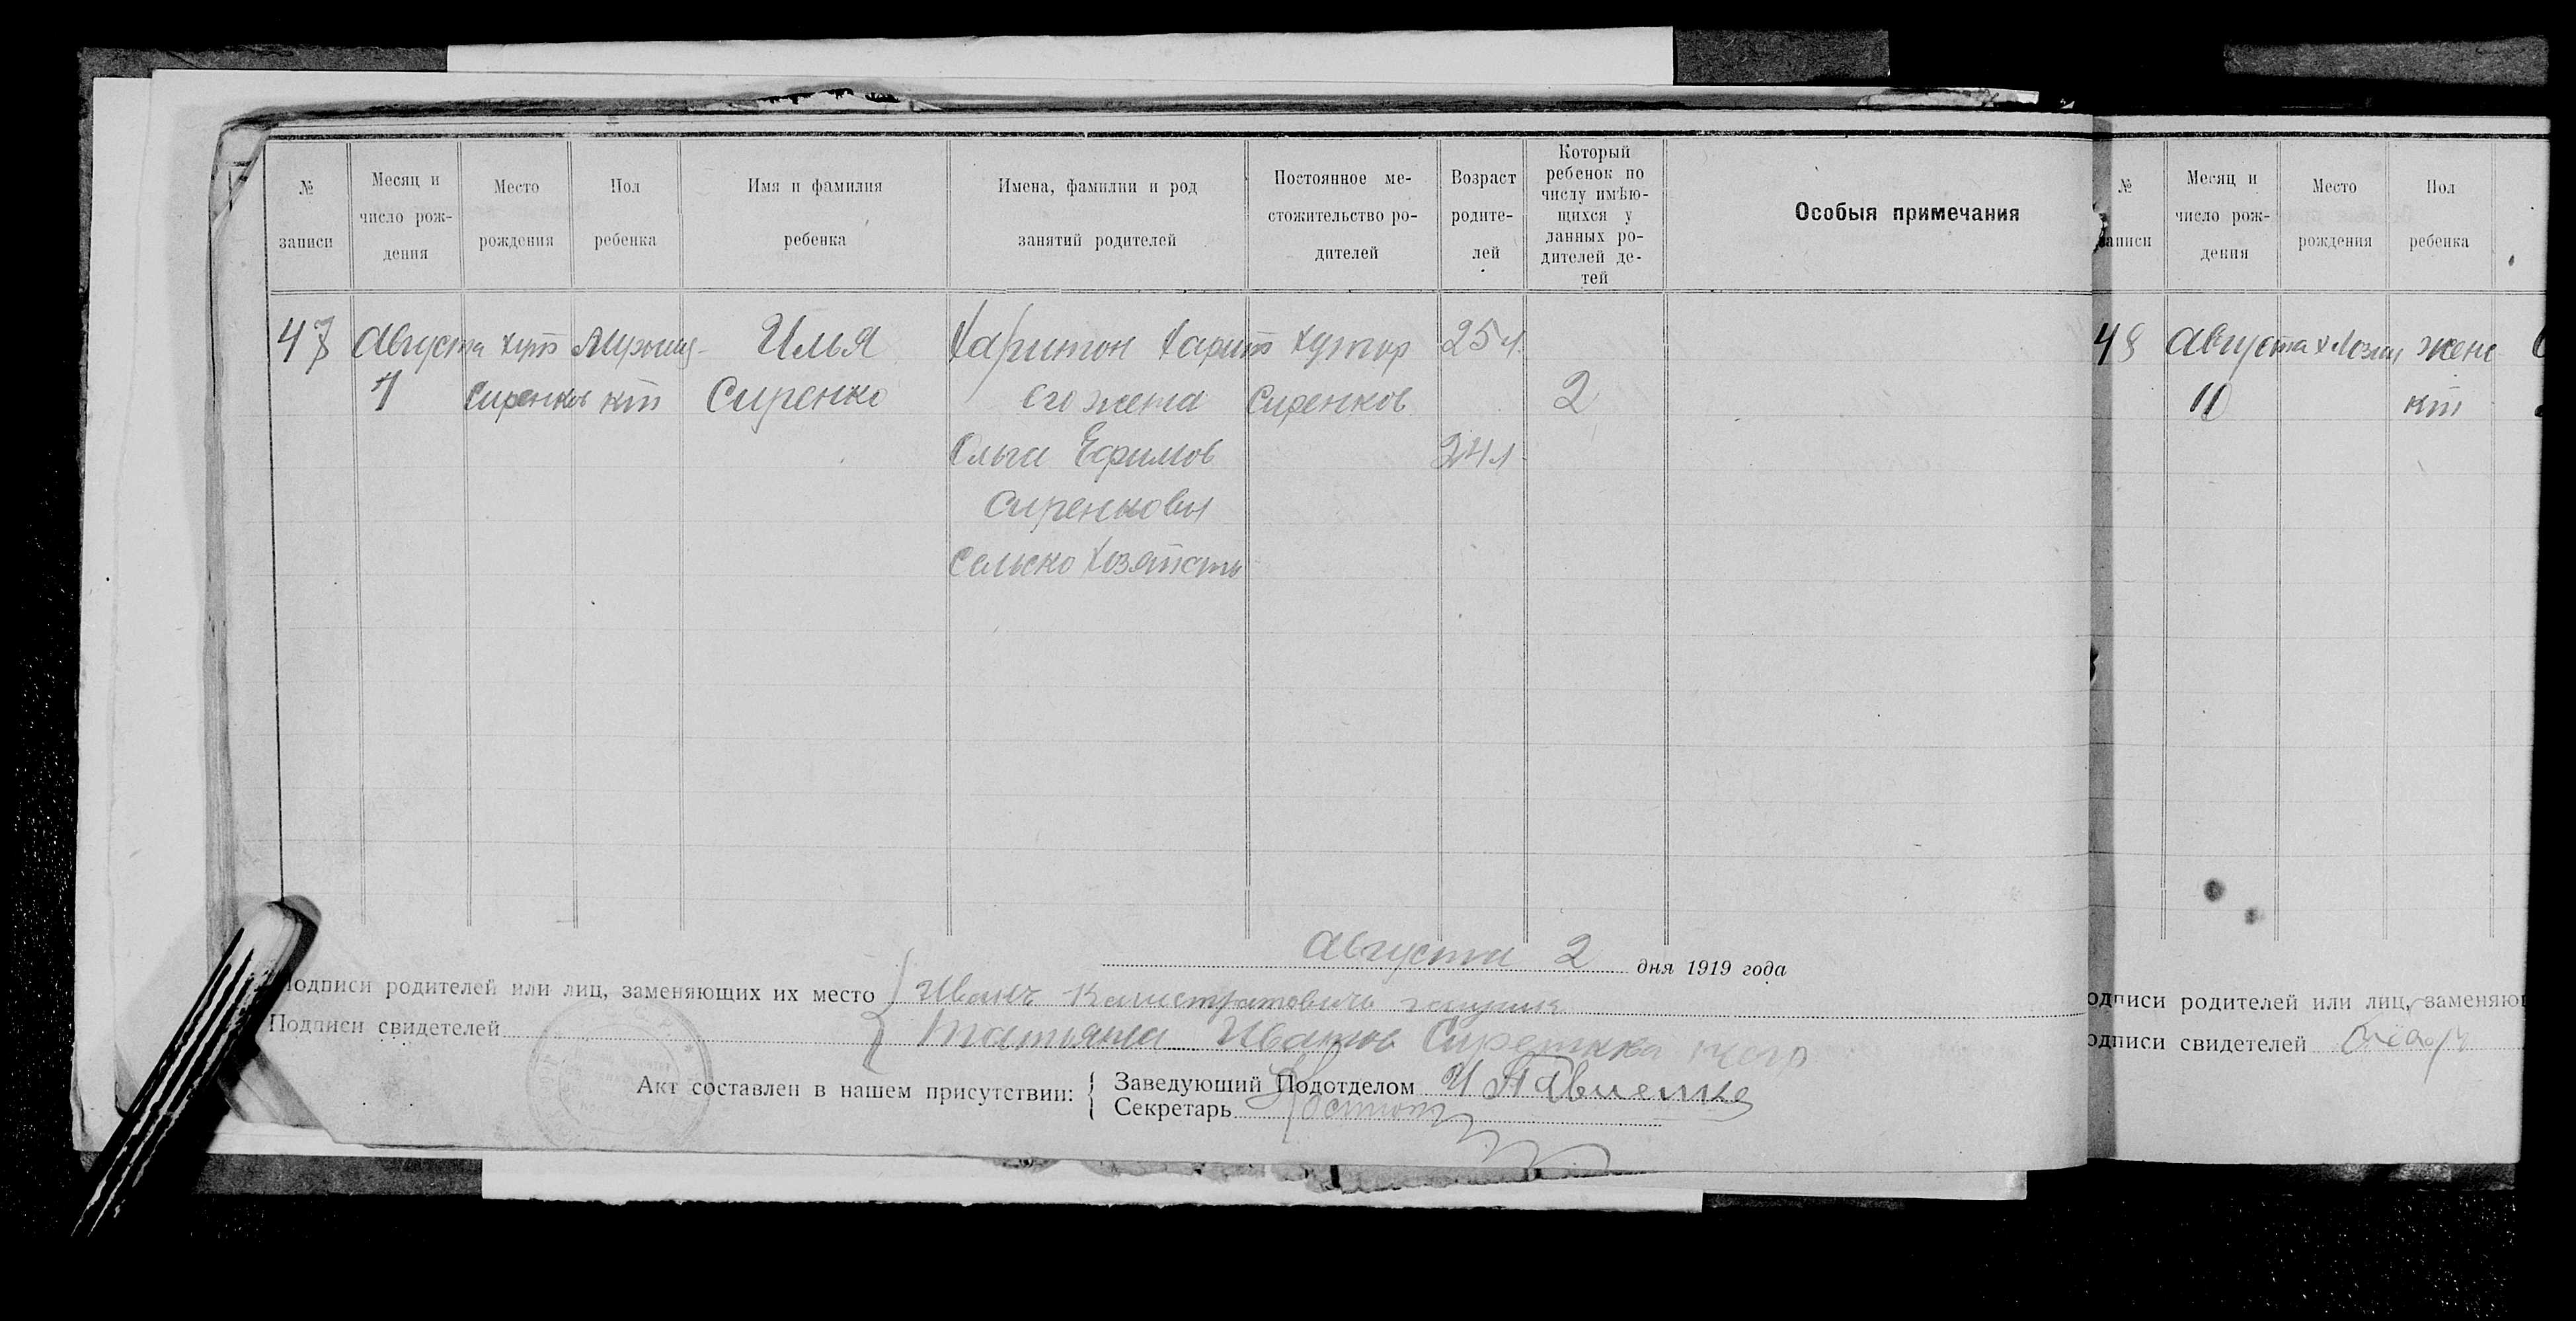 № записи
Месяц и число рождения
Место рождения
Пол ребенка
Имя и фамилия ребенка
Имена, фамилии и род занятий родителей
Постоянное местожительство родителей
Возраст родителей
Который ребенок по числу имѣющихся у данных родителей детей
Особыя примечания
47 Августа хут Мужыц- Илья Харитон Харит хутор 25 л.
1 Сиренков кт Сиренко его жена Сиренков 2
Ольга Ефимов 24 л.
Сиренковы
Сельско хозяйств
Августа 2 дня 1919 года
Подписи родителей или лиц, заменяющих их место Иванъ Калистратовичъ
Подписи свидетелей Татьяна Иванов Сиренкова
Акт составлен в нашем присутствии:
Заведующий Подотделом И
Секретарь
№ записи
Месяц и число рождения
Место рождения
Пол ребенка
48 Августа женс
10 кт
одписи родителей или лиц, заменяю
одписи свидетелей